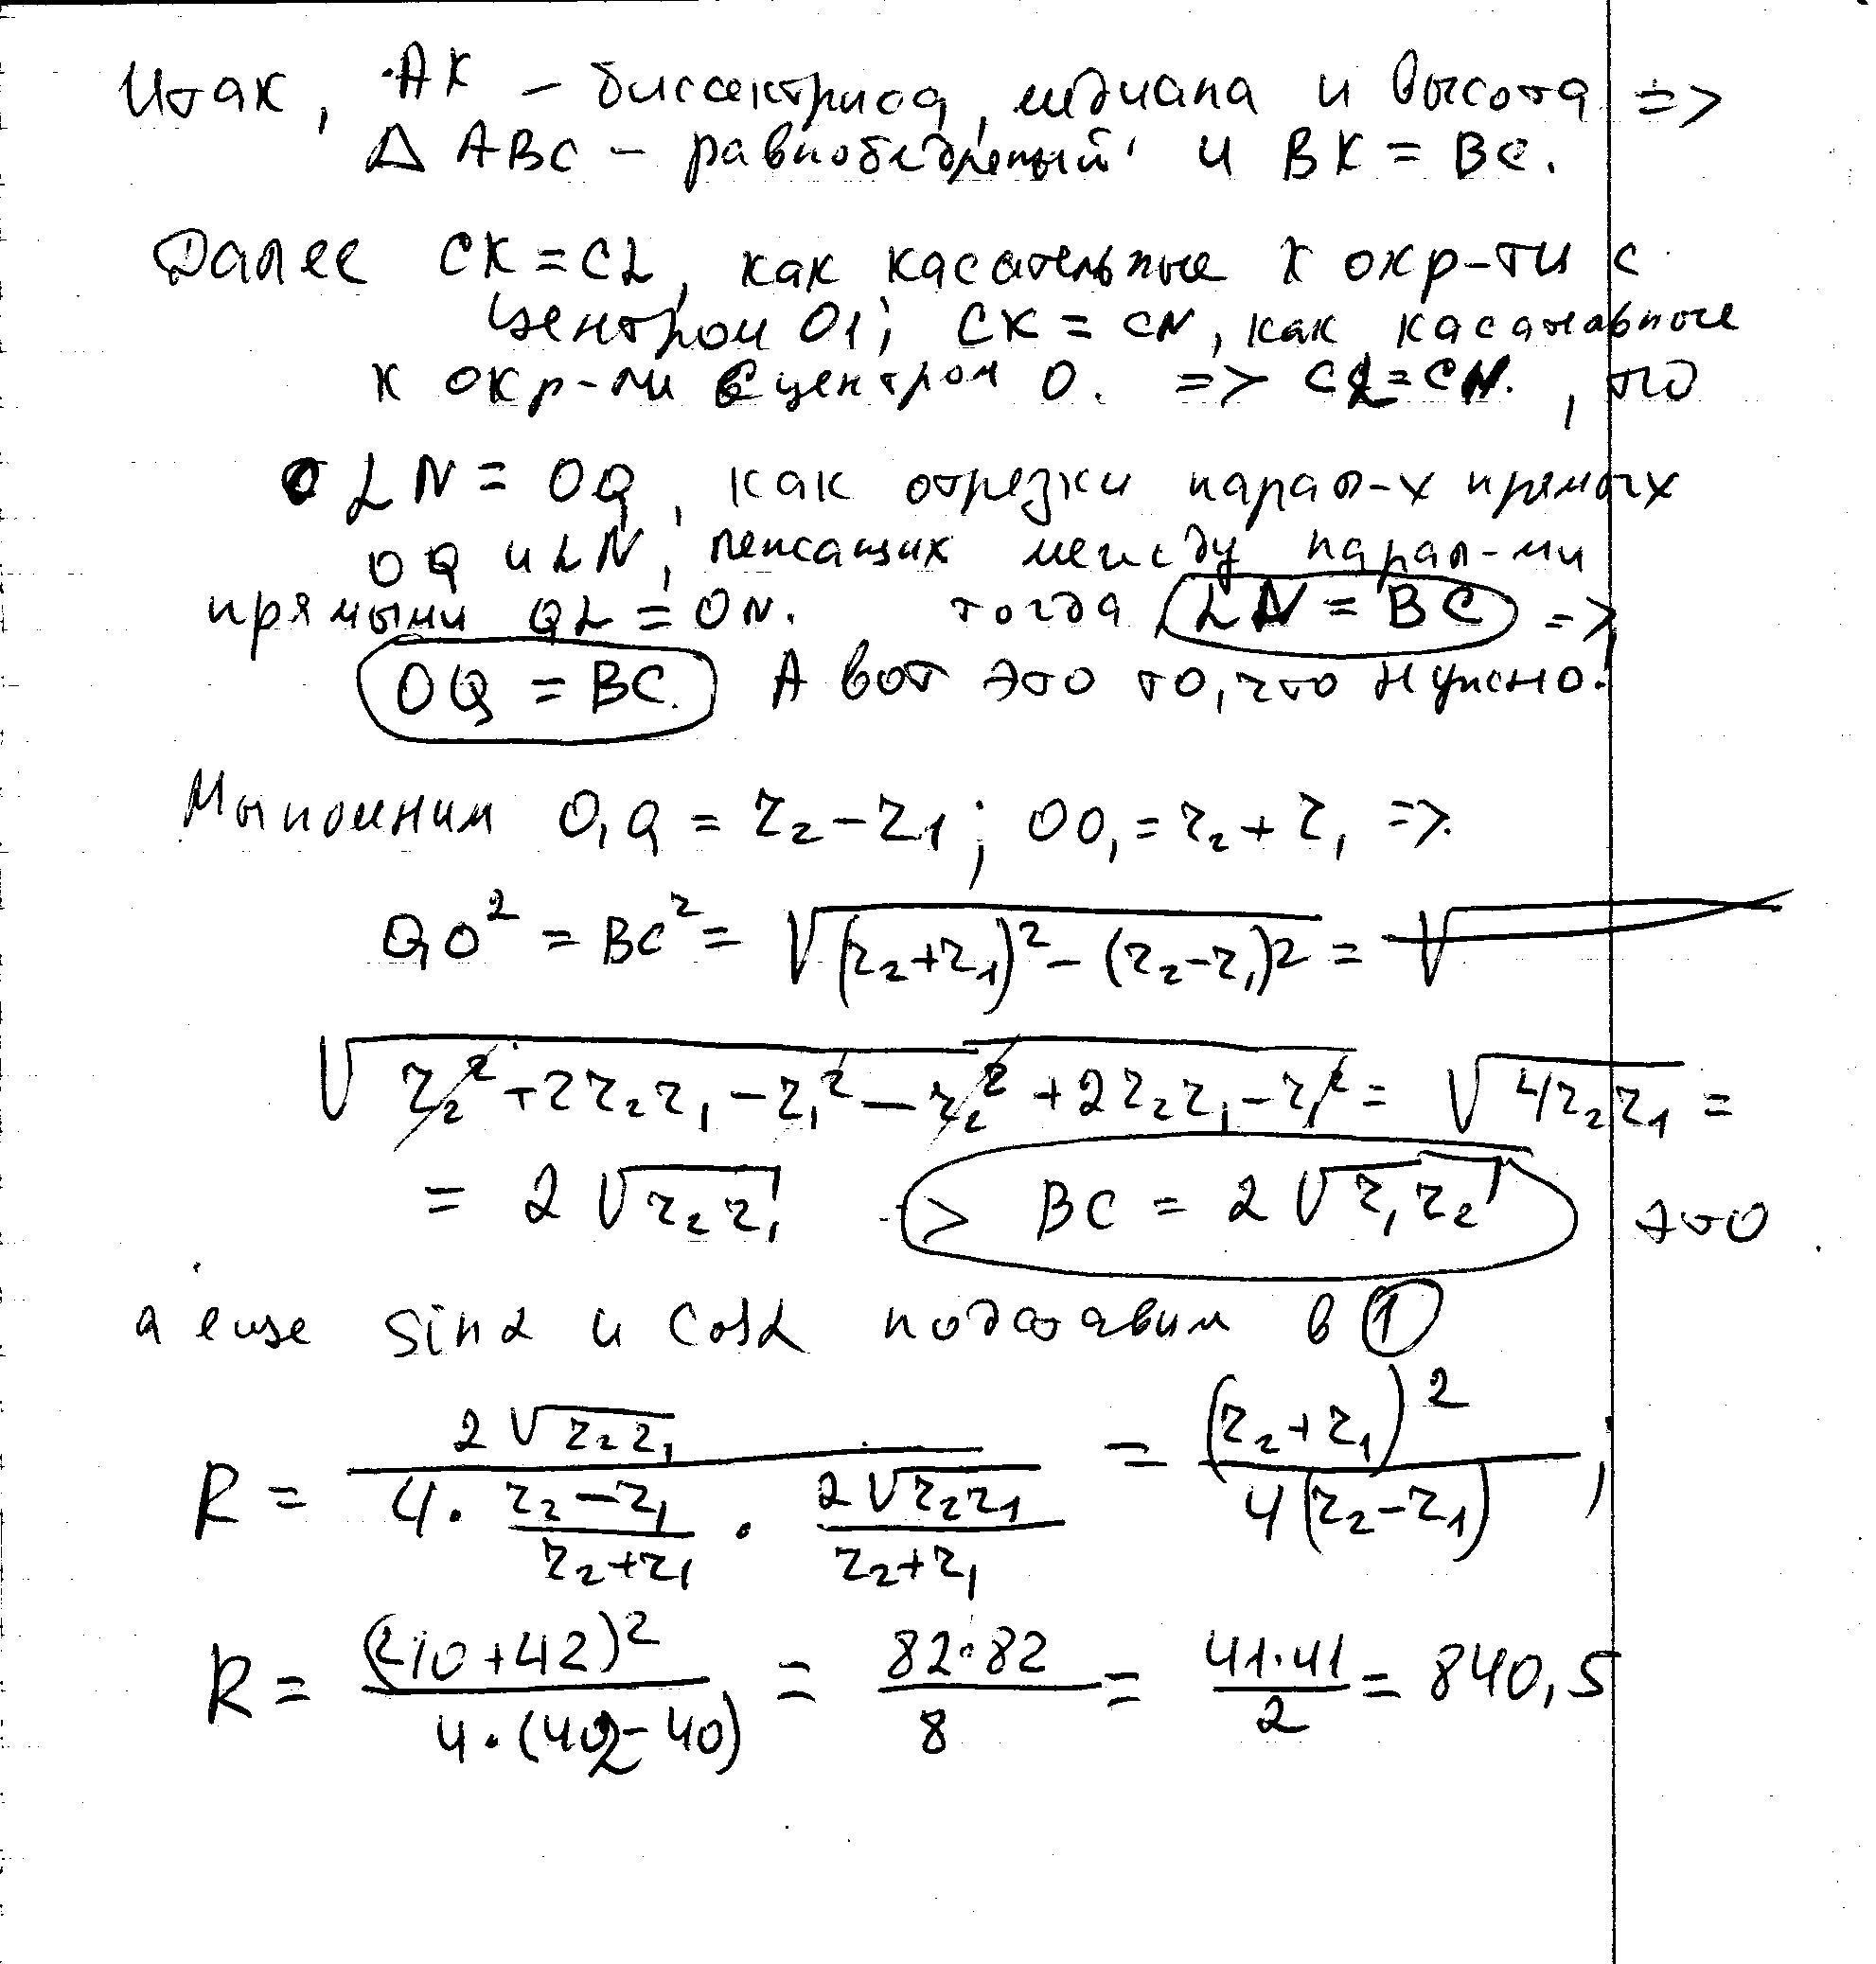 Итак, AK – биссектриса, медиана и высота =>
Δ ABC – равнобедреный и BK = BC.
Далее CK = CL, как касательные к окр-ти с
центром O1; CK = CN, как касательные
к окр-ти с центром O. => CL = CN. , то
LN = OQ, как отрезки парал-х прямых
OQ и LN, лежащих между парал-ми
прямыми QL = ON. тогда LN = BC =>
OQ = BC. А вот это то, что нужно.
Мы помним O₁Q = r₂ – r₁; OO₁ = r₂ + r₁ =>
QO² = BC² = √((r₂+r₁)² – (r₂–r₁)²) =
√(r₂² + 2r₂r₁ – r₁² – r₂² + 2r₂r₁ – r₁²) = √(4r₂r₁) =
= 2√(r₂r₁) -> BC = 2√(r₁r₂) это
а еще sinα и cosα подставим в ①
R = 2√(r₂r₁) / (4 · (r₂–r₁)/(r₂+r₁) · 2√(r₂r₁)/(r₂+r₁)) = (r₂+r₁)² / 4(r₂–r₁) ,
R = (40+42)² / 4·(42–40) = 82·82 / 8 = 41·41 / 2 = 840,5